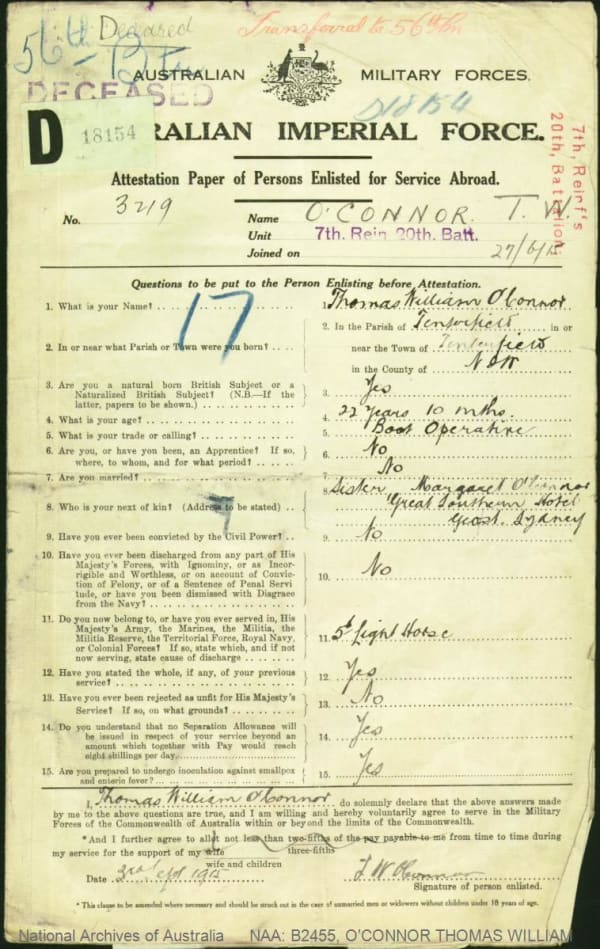 Deceased
56th Bn
Transferred to 56th Bn
AUSTRALIAN MILITARY FORCES.
DECEASED
D 18154
18154
RALIAN IMPERIAL FORCE.
7th, Reinf's
20th, Battalion
Attestation Paper of Persons Enlisted for Service Abroad.
No. 3219 Name O'CONNOR. T. W.
Unit 7th. Rein 20th. Batt.
Joined on 27/6/15
Questions to be put to the Person Enlisting before Attestation.
17
1. What is your Name? 1. Thomas William O'Connor
2. In or near what Parish or Town were you born? 2. In the Parish of Tenterfield in or
near the Town of Tenterfield
in the County of NSW
3. Are you a natural born British Subject or a
Naturalized British Subject? (N.B.—If the
latter, papers to be shown.) 3. Yes
4. What is your age? 4. 22 Years 10 mths.
5. What is your trade or calling? 5. Boot Operative
6. Are you, or have you been, an Apprentice? If so,
where, to whom, and for what period? 6. No
7. Are you married? 7. No
8. Who is your next of kin? (Address to be stated) 8. Sister Margaret O'Connor
Great Southern Hotel
Sydney
9. Have you ever been convicted by the Civil Power? 9. No
10. Have you ever been discharged from any part of His
Majesty's Forces, with Ignominy, or as Incor-
rigible and Worthless, or on account of Convic-
tion of Felony, or of a Sentence of Penal Servi-
tude, or have you been Dismissed with Disgrace
from the Navy? 10. No
11. Do you now belong to, or have you ever served in, His
Majesty's Army, the Marines, the Militia, the
Militia Reserve, the Territorial Force, Royal Navy,
or Colonial Forces? If so, state which, and if not
now serving, state cause of discharge 11. 5th Light Horse
12. Have you stated the whole, if any, of your previous
service? 12. Yes
13. Have you ever been rejected as unfit for His Majesty's
Service? If so, on what grounds? 13. No
14. Do you understand that no Separation Allowance will
be issued in respect of your service beyond an
amount which together with Pay would reach
eight shillings per day 14. Yes
15. Are you prepared to undergo inoculation against smallpox
and enteric fever? 15. Yes
I, Thomas William O'Connor do solemnly declare that the above answers made
by me to the above questions are true, and I am willing and hereby voluntarily agree to serve in the Military
Forces of the Commonwealth of Australia within or beyond the limits of the Commonwealth.
*And I further agree to allot not less than two-fifths of the pay payable to me from time to time during
three-fifths
my service for the support of my wife
wife and children
Date 3rd Sept 1915 T W O'Connor
Signature of person enlisted.
*This clause to be amended where necessary and should be struck out in the case of unmarried men or widowers without children under 18 years of age.
National Archives of Australia NAA: B2455, O'CONNOR THOMAS WILLIAM